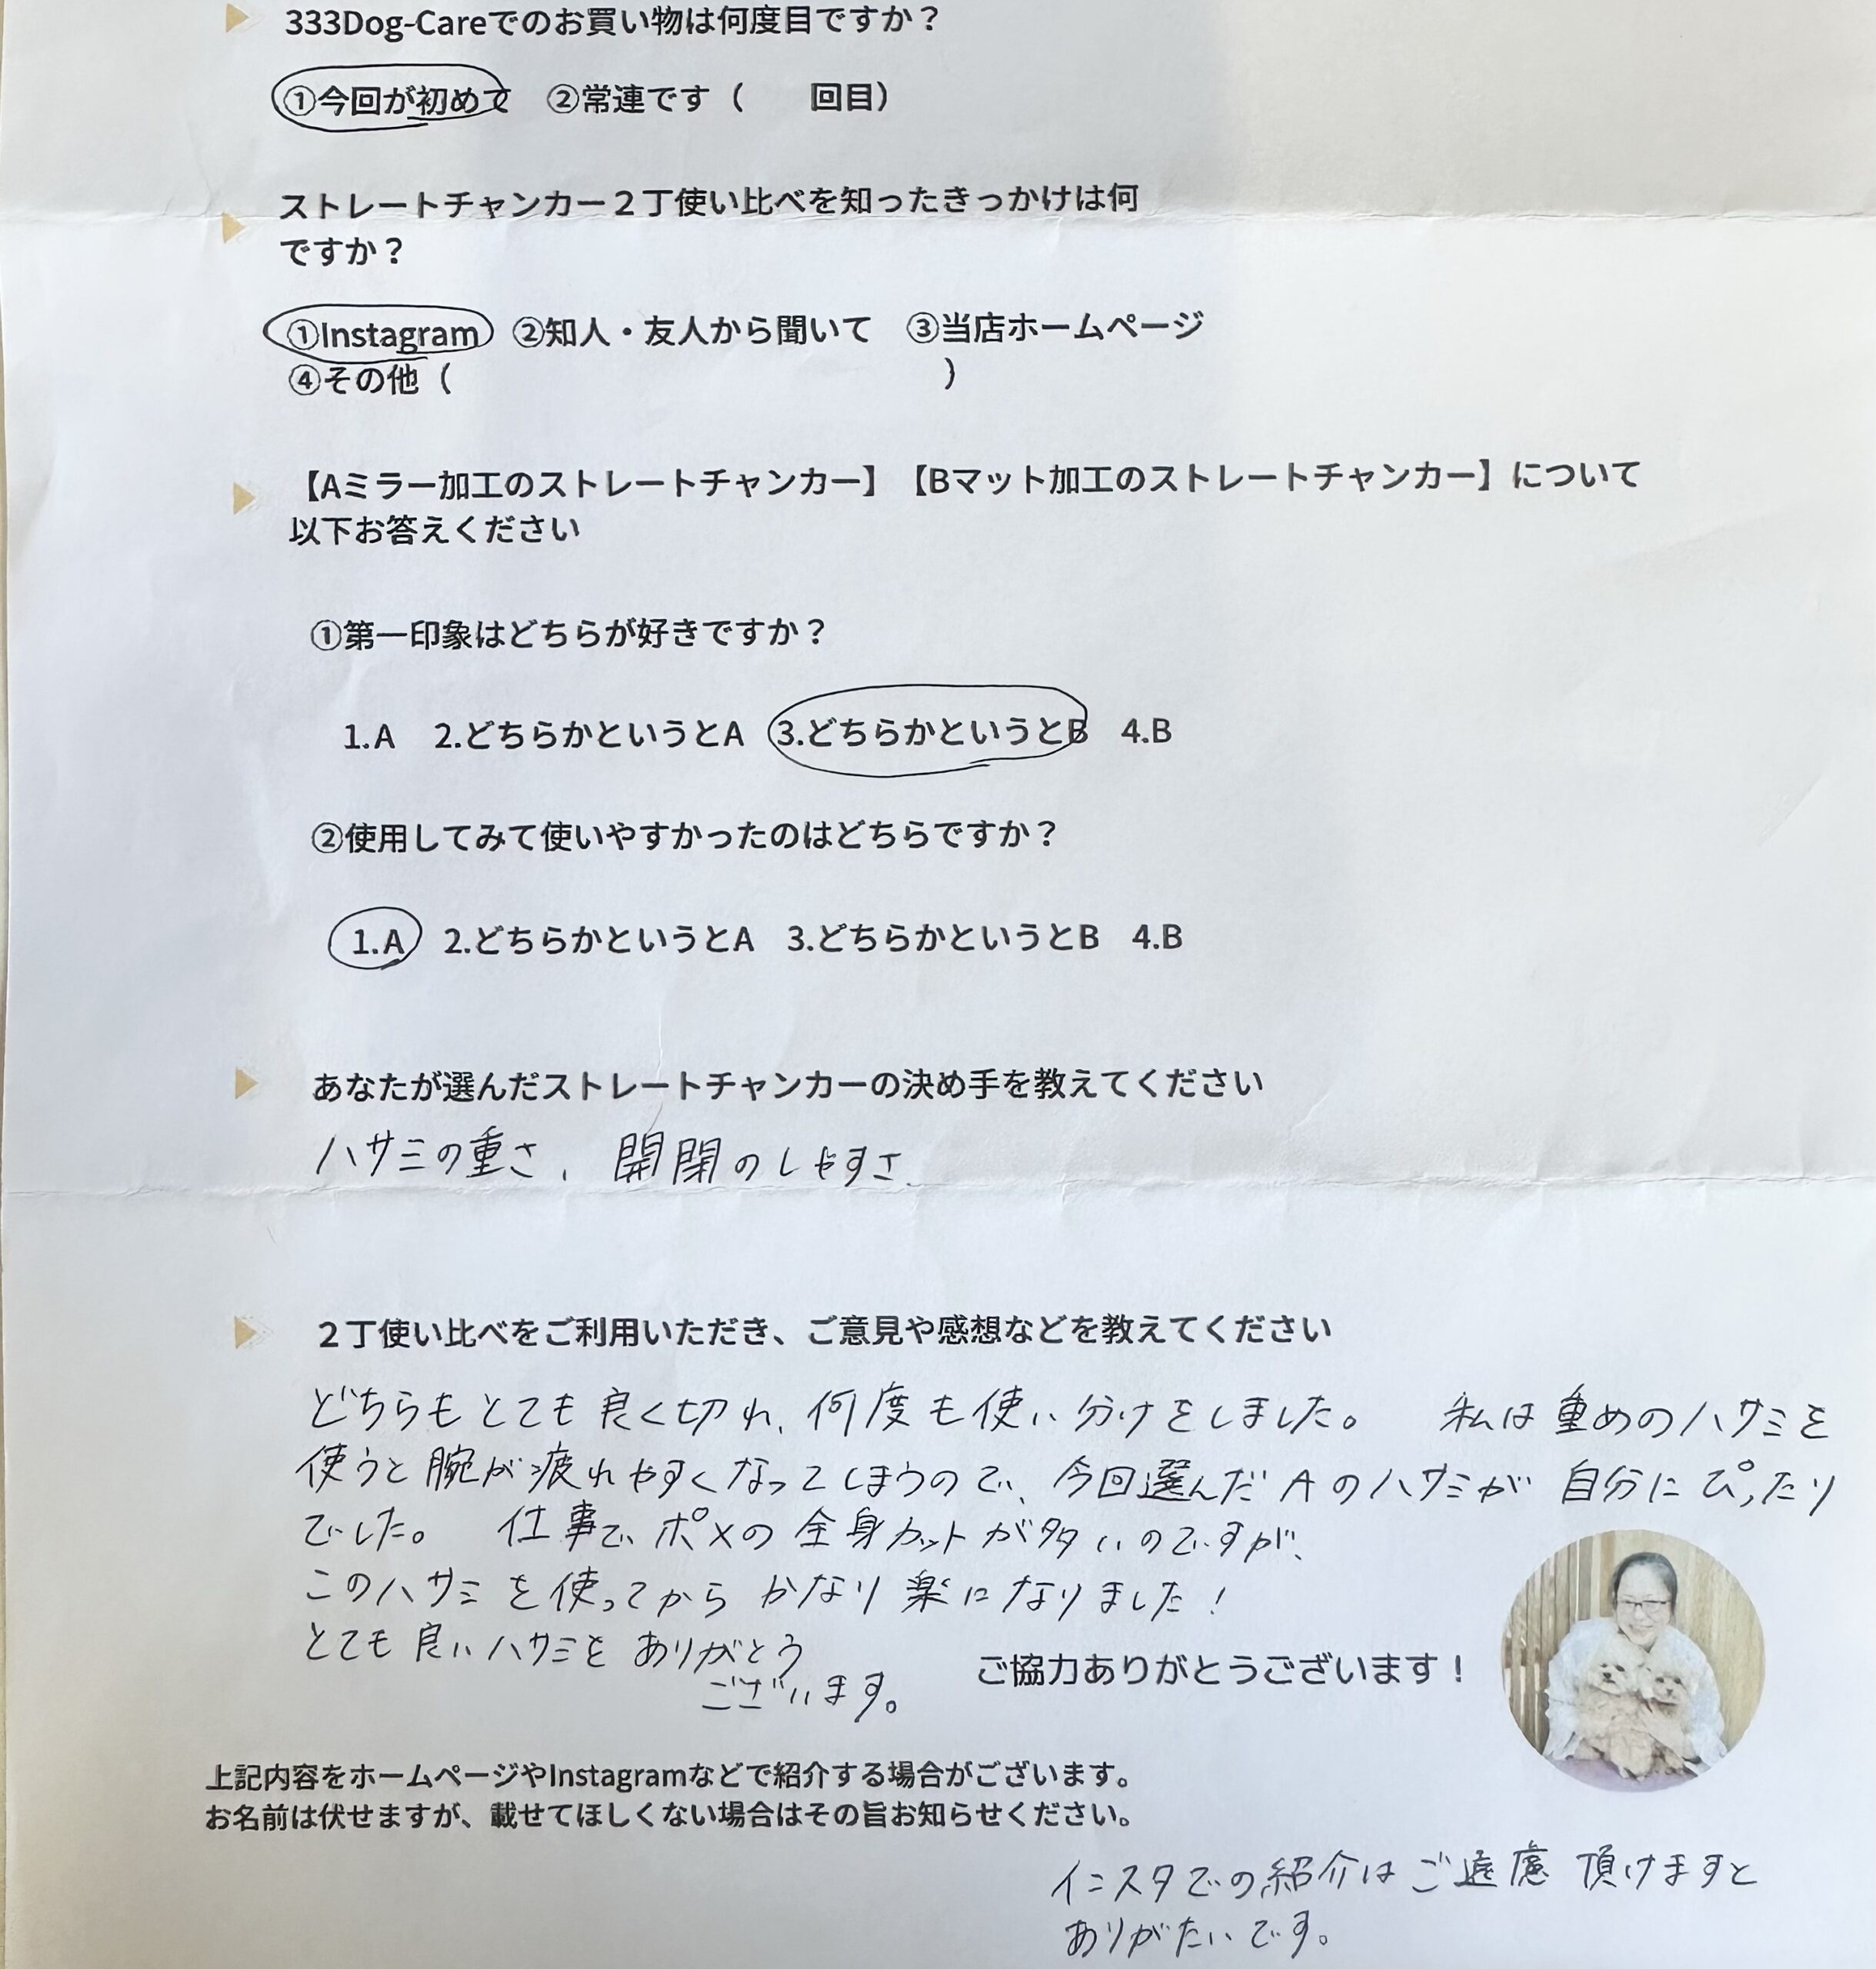 333Dog-Careでのお買い物は何度目ですか？
①今回が初めて　②常連です（　　回目）
ストレートチャンカー２丁使い比べを知ったきっかけは何
ですか？
①Instagram　②知人・友人から聞いて　③当店ホームページ
④その他（　　　　　　　　　　　　　　　）
【Aミラー加工のストレートチャンカー】【Bマット加工のストレートチャンカー】について
以下お答えください
①第一印象はどちらが好きですか？
1.A　2.どちらかというとA　3.どちらかというとB　4.B
②使用してみて使いやすかったのはどちらですか？
1.A　2.どちらかというとA　3.どちらかというとB　4.B
あなたが選んだストレートチャンカーの決め手を教えてください
ハサミの重さ、開閉のしやすさ
２丁使い比べをご利用いただき、ご意見や感想などを教えてください
どちらもとても良く切れ、何度も使い分けをしました。　私は重めのハサミを
使うと腕が疲れやすくなってしまうので、今回選んだAのハサミが自分にぴったり
でした。　仕事でポメの全身カットが多いのですが、
このハサミを使ってからかなり楽になりました！
とても良いハサミをありがとう
ございます。
ご協力ありがとうございます！
上記内容をホームページやInstagramなどで紹介する場合がございます。
お名前は伏せますが、載せてほしくない場合はその旨お知らせください。
インスタでの紹介はご遠慮頂けますと
ありがたいです。